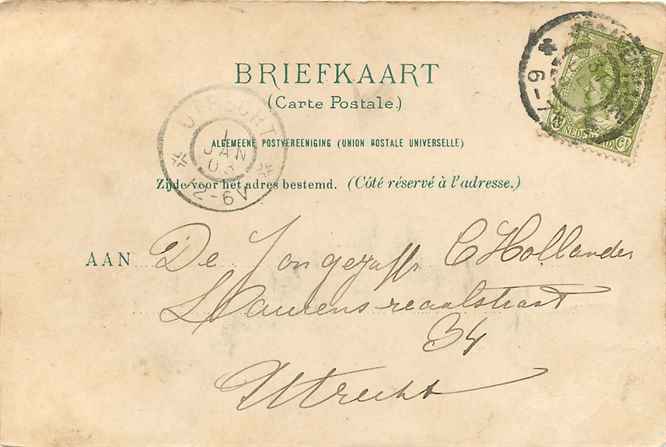 BRIEFKAART
(Carte Postale.)
ALGEMEENE POSTVEREENIGING (UNION POSTALE UNIVERSELLE)
Zijde voor het adres bestemd. (Côté réservé à l'adresse.)
UTRECHT
1
JAN
12-6V
6-7
NEDERLAND
AAN De Jongejuffr C Hollander
Laurens-reaalstraat
34
Utrecht